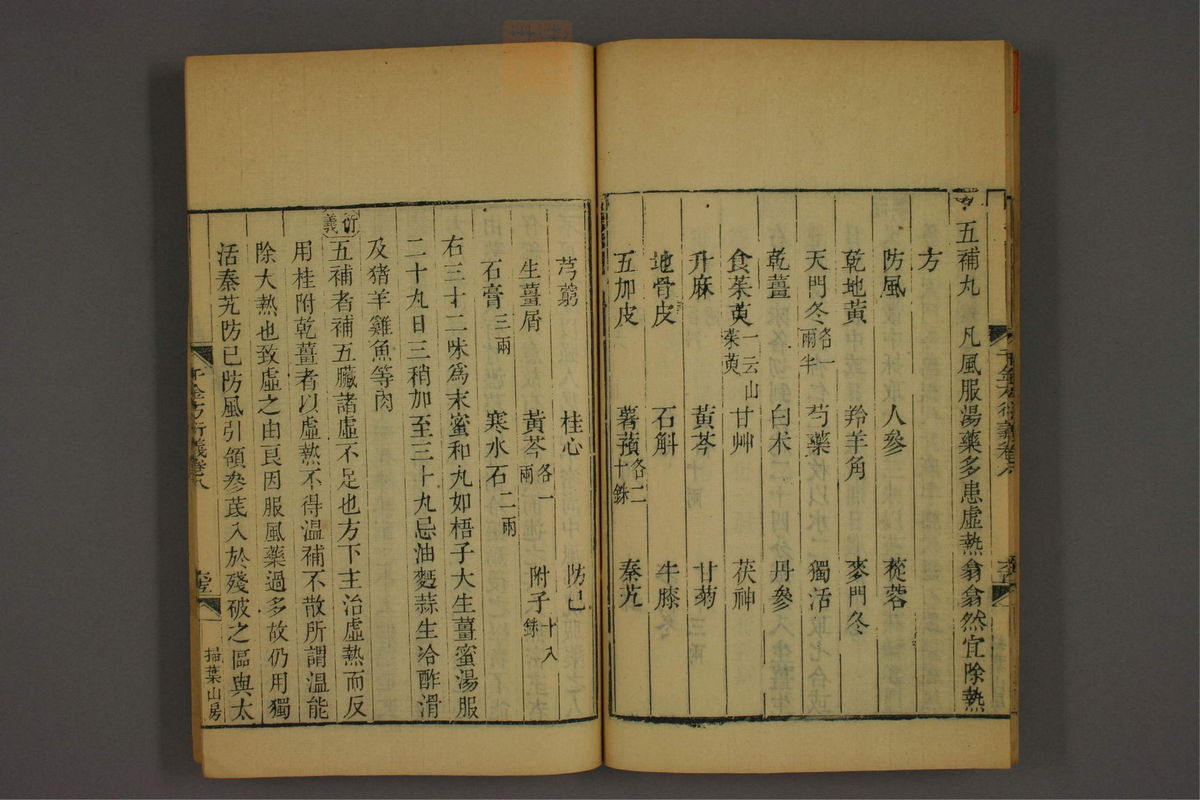 五補丸 凡風服湯藥多患虛熱翕翕然宜除熱
方
防風 人參 蓯蓉
乾地黃 羚羊角 麥門冬
天門冬各一兩半 芍藥 獨活
乾薑 白朮 丹參
食茱萸一云山茱萸 甘艸 茯神
升麻 黃芩 甘菊
地骨皮 石斛 牛膝
五加皮 薯蕷各二十銖 秦艽
芎藭 桂心 防己
生薑屑 黃芩各一兩 附子十八銖
石膏三兩 寒水石二兩
右三十二味爲末蜜和丸如梧子大生薑蜜湯服
二十九日三稍加至三十丸忌油麪蒜生冷酢滑
及猪羊雞魚等肉
衍義
五補者補五臟諸虛不足也方下主治虛熱而反
用桂附乾薑者以虛熱不得溫補不散所謂溫能
除大熱也致虛之由良因服風藥過多故仍用獨
活秦艽防己防風引領參芪入於殘破之區與太
千金方衍義卷八
掃葉山房
千金方衍義卷八